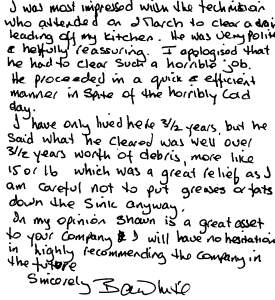 I was most impressed with the technician
who attended on 2 March to clear a drain
leading off my kitchen. He was very polite
& helfully reassuring. I apologised that
he had to clear such a horrible job.
He proceeded in a quick & efficient
manner in spite of the horribly cold
day.
I have only lived here 3½ years, but he
said what he cleared was well over
3½ years worth of debris, more like
15 or 16 which was a great relief as I
am careful not to put greases or fats
down the sink anyway.
In my opinion Shawn is a great asset
to your company & I will have no hesitation
in highly recommending the company in
the future
Sincerely